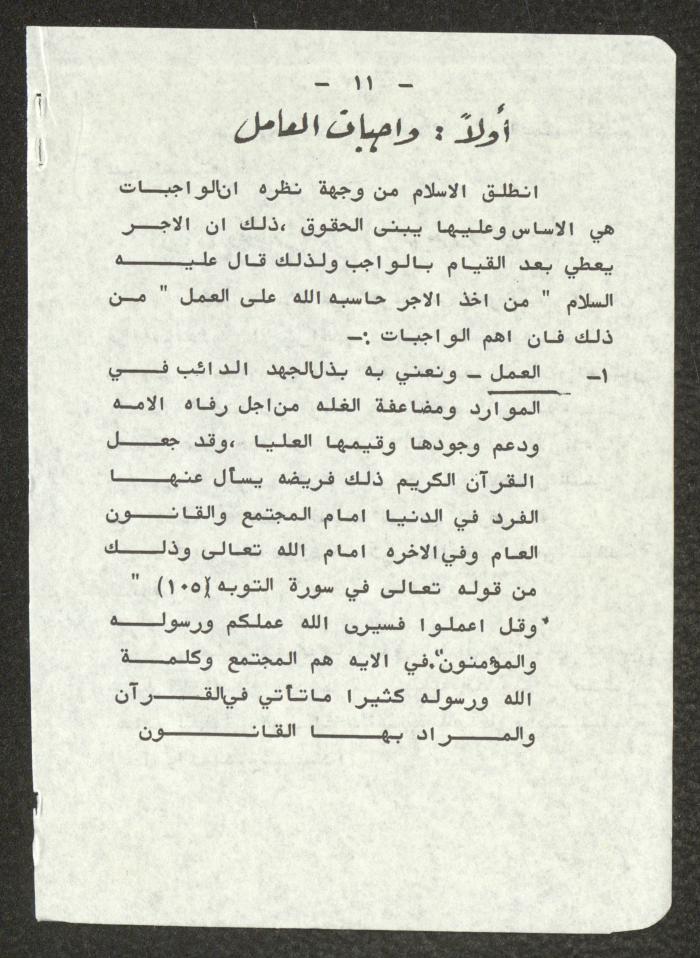 - ١١ -
أولاً : واجبات العامل
انطلق الاسلام من وجهة نظره ان الواجبات
هي الاساس وعليها يبنى الحقوق ،ذلك ان الاجر
يعطي بعد القيام بالواجب ولذلك قال عليه
السلام " من اخذ الاجر حاسبه الله على العمل " من
ذلك فان اهم الواجبات :-
١- العمل - ونعني به بذل الجهد الدائب في
الموارد ومضاعفة الغله من اجل رفاه الامه
ودعم وجودها وقيمها العليا ،وقد جعل
القرآن الكريم ذلك فريضه يسأل عنها
الفرد في الدنيا امام المجتمع والقانون
العام وفي الاخره امام الله تعالى وذلك
من قوله تعالى في سورة التوبه (١٠٥) "
"وقل اعملوا فسيرى الله عملكم ورسوله
والمؤمنون". في الايه هم المجتمع وكلمة
الله ورسوله كثيرا ماتأتي في القرآن
والمراد بها القانون